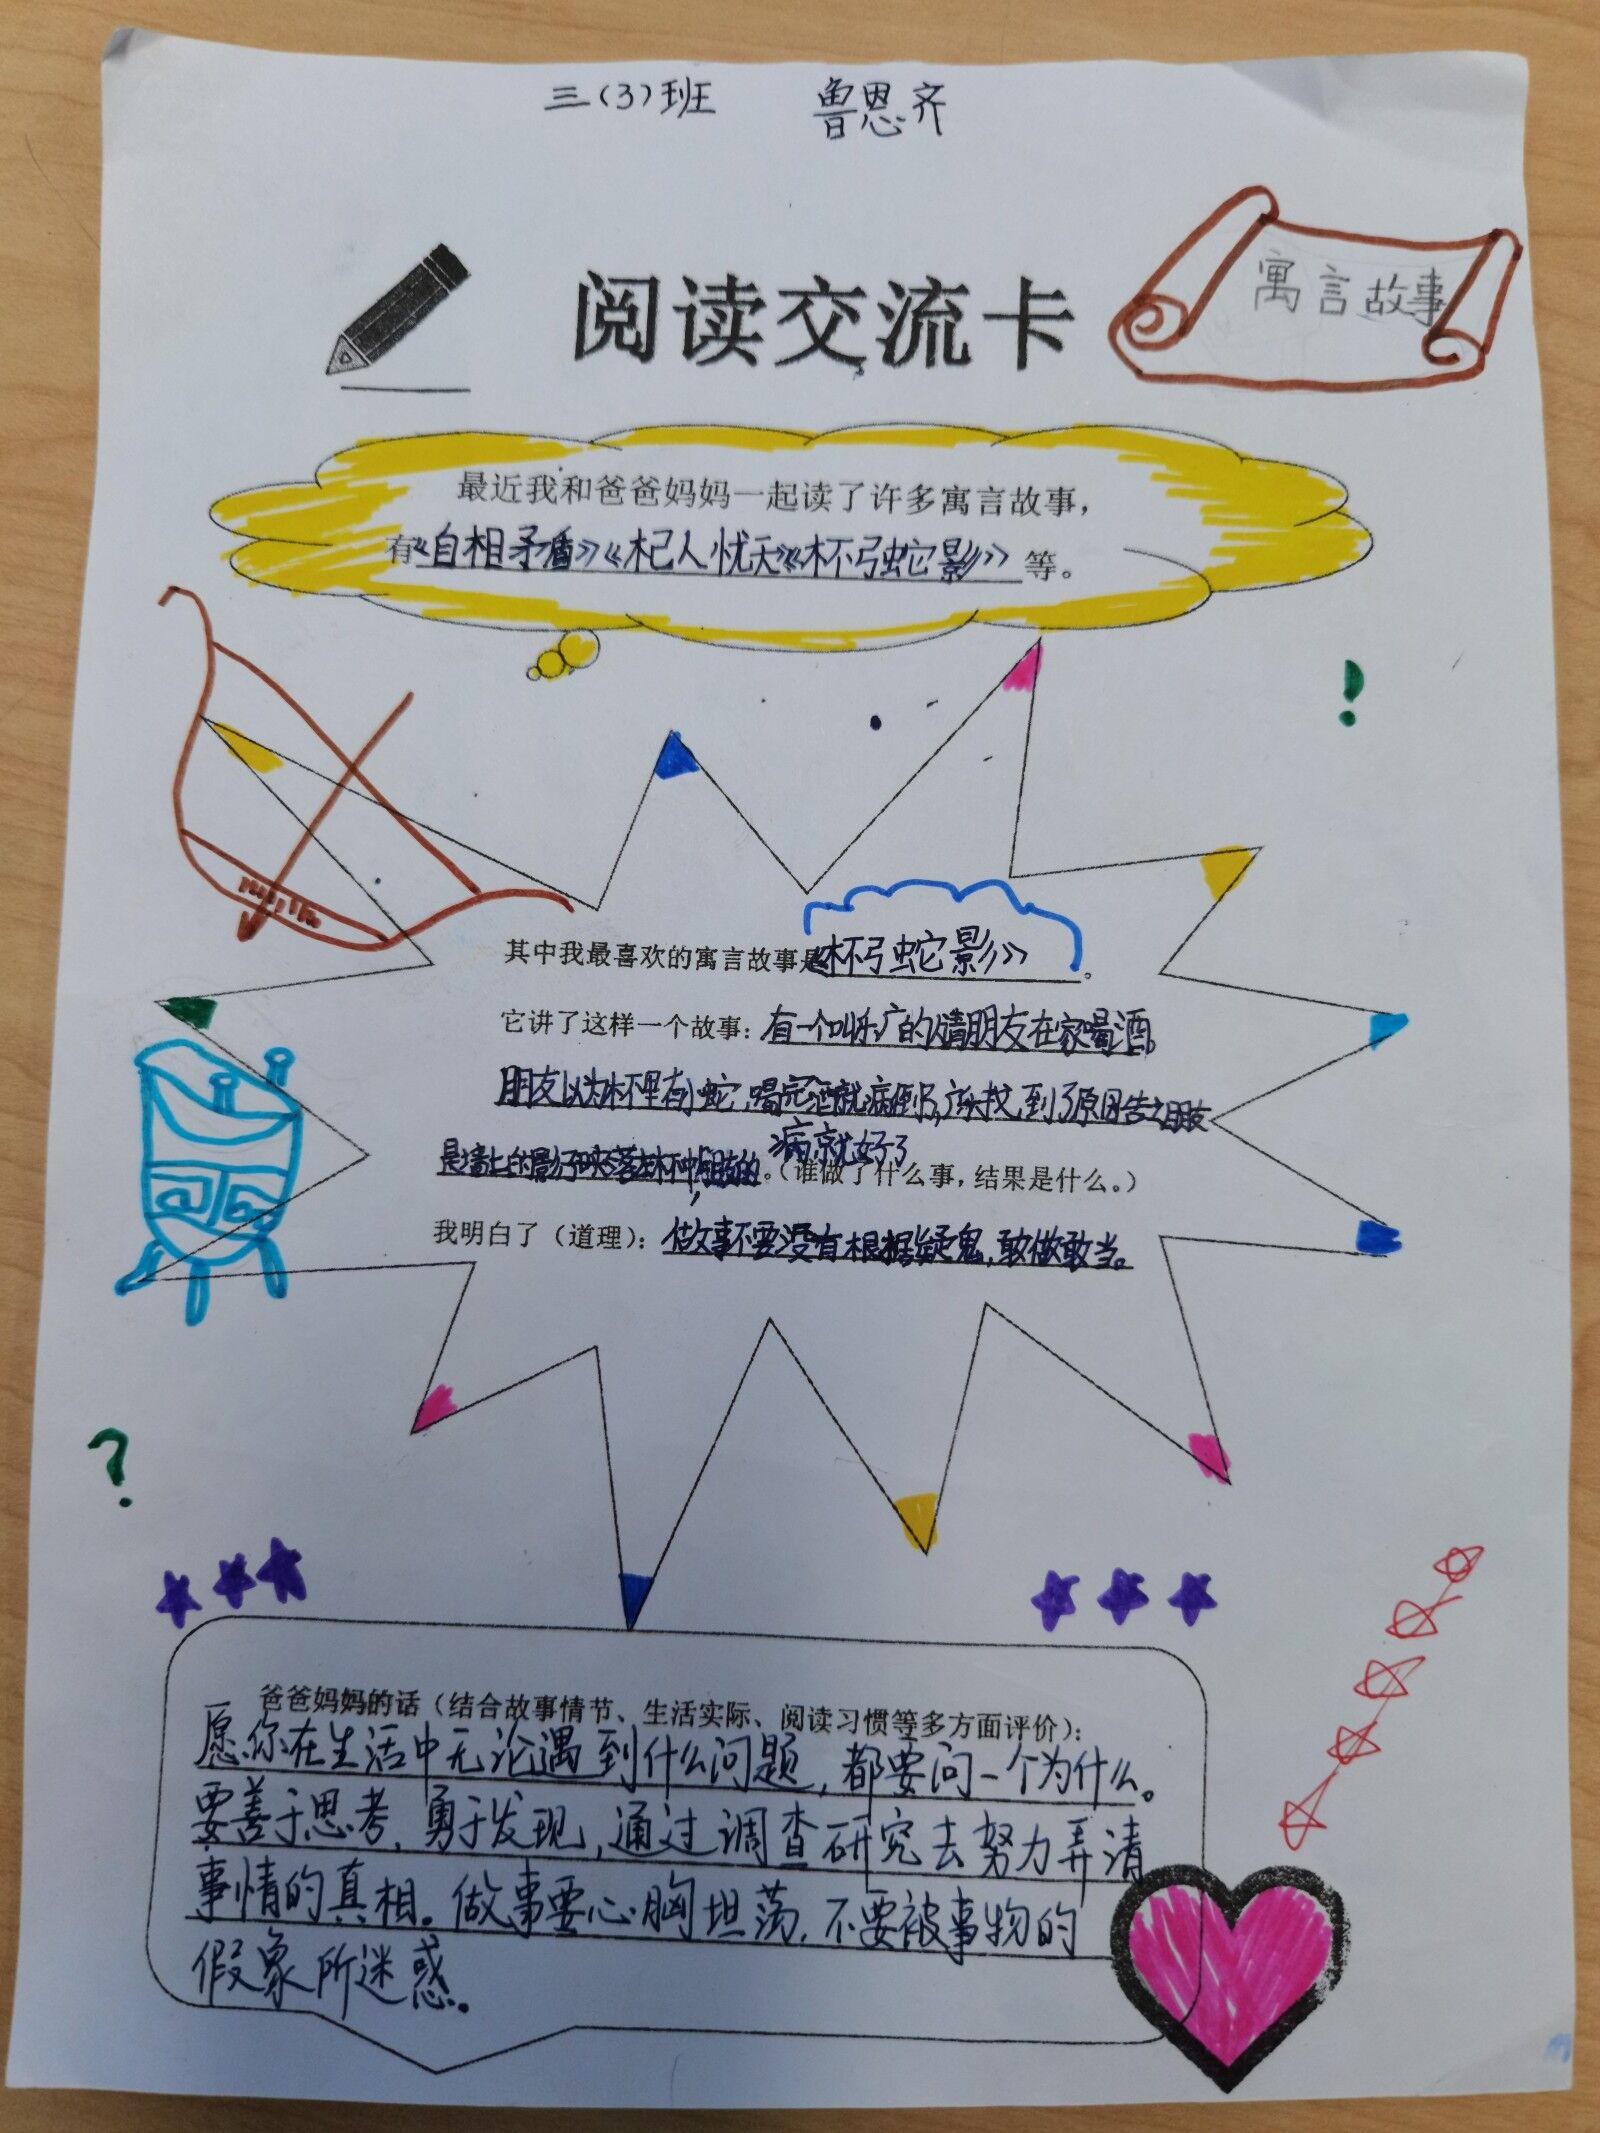 三(3)班 鲁恩齐
阅读交流卡
寓言故事
最近我和爸爸妈妈一起读了许多寓言故事，
有《自相矛盾》《杞人忧天》《杯弓蛇影》等。
其中我最喜欢的寓言故事是《杯弓蛇影》。
它讲了这样一个故事：有一个叫乐广的人请朋友在家喝酒。
朋友以为杯里有小蛇，喝完酒就病倒了，乐广找到了原因告之朋友
病就好了
是墙上的影子映落在杯中。（谁做了什么事，结果是什么。）
我明白了（道理）：做事不要没有根据疑鬼，敢做敢当。
爸爸妈妈的话（结合故事情节、生活实际、阅读习惯等多方面评价）：
愿你在生活中无论遇到什么问题，都要问一个为什么。
要善于思考，勇于发现，通过调查研究去努力弄清
事情的真相。做事要心胸坦荡，不要被事物的
假象所迷惑。